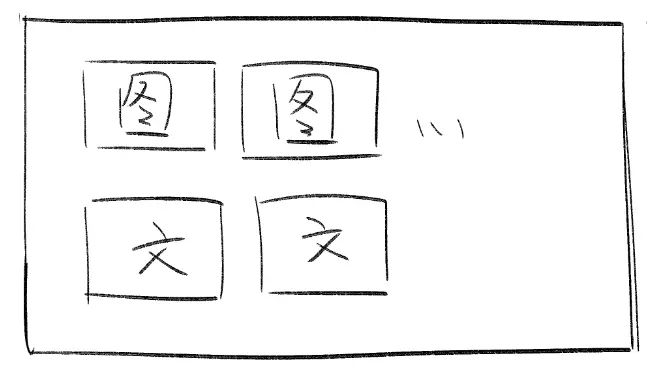 图 图 ...
文 文